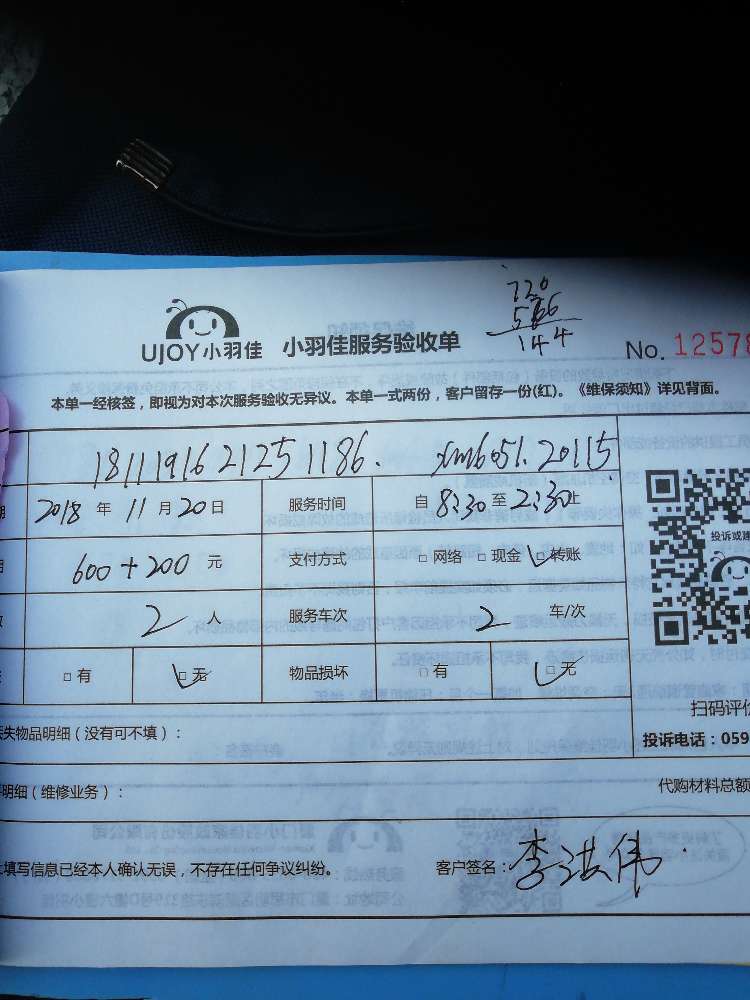 720
566
144
UJOY小羽佳 小羽佳服务验收单
No. 12578
本单一经核签，即视为对本次服务验收无异议。本单一式两份，客户留存一份(红)。《维保须知》详见背面。
181119162125 1186. xm6051.20115
2018 年 11 月 20 日 服务时间 自 8:30 至 2:30 止
600+200 元 支付方式 □ 网络 □ 现金 □ 转账
投诉或建
2 人 服务车次 2 车/次
□ 有 □ 无 物品损坏 □ 有 □ 无
扫码评价
失物品明细（没有可不填）：
投诉电话：059
明细（维修业务）：
代购材料总额
填写信息已经本人确认无误，不存在任何争议纠纷。 客户签名：李洪伟